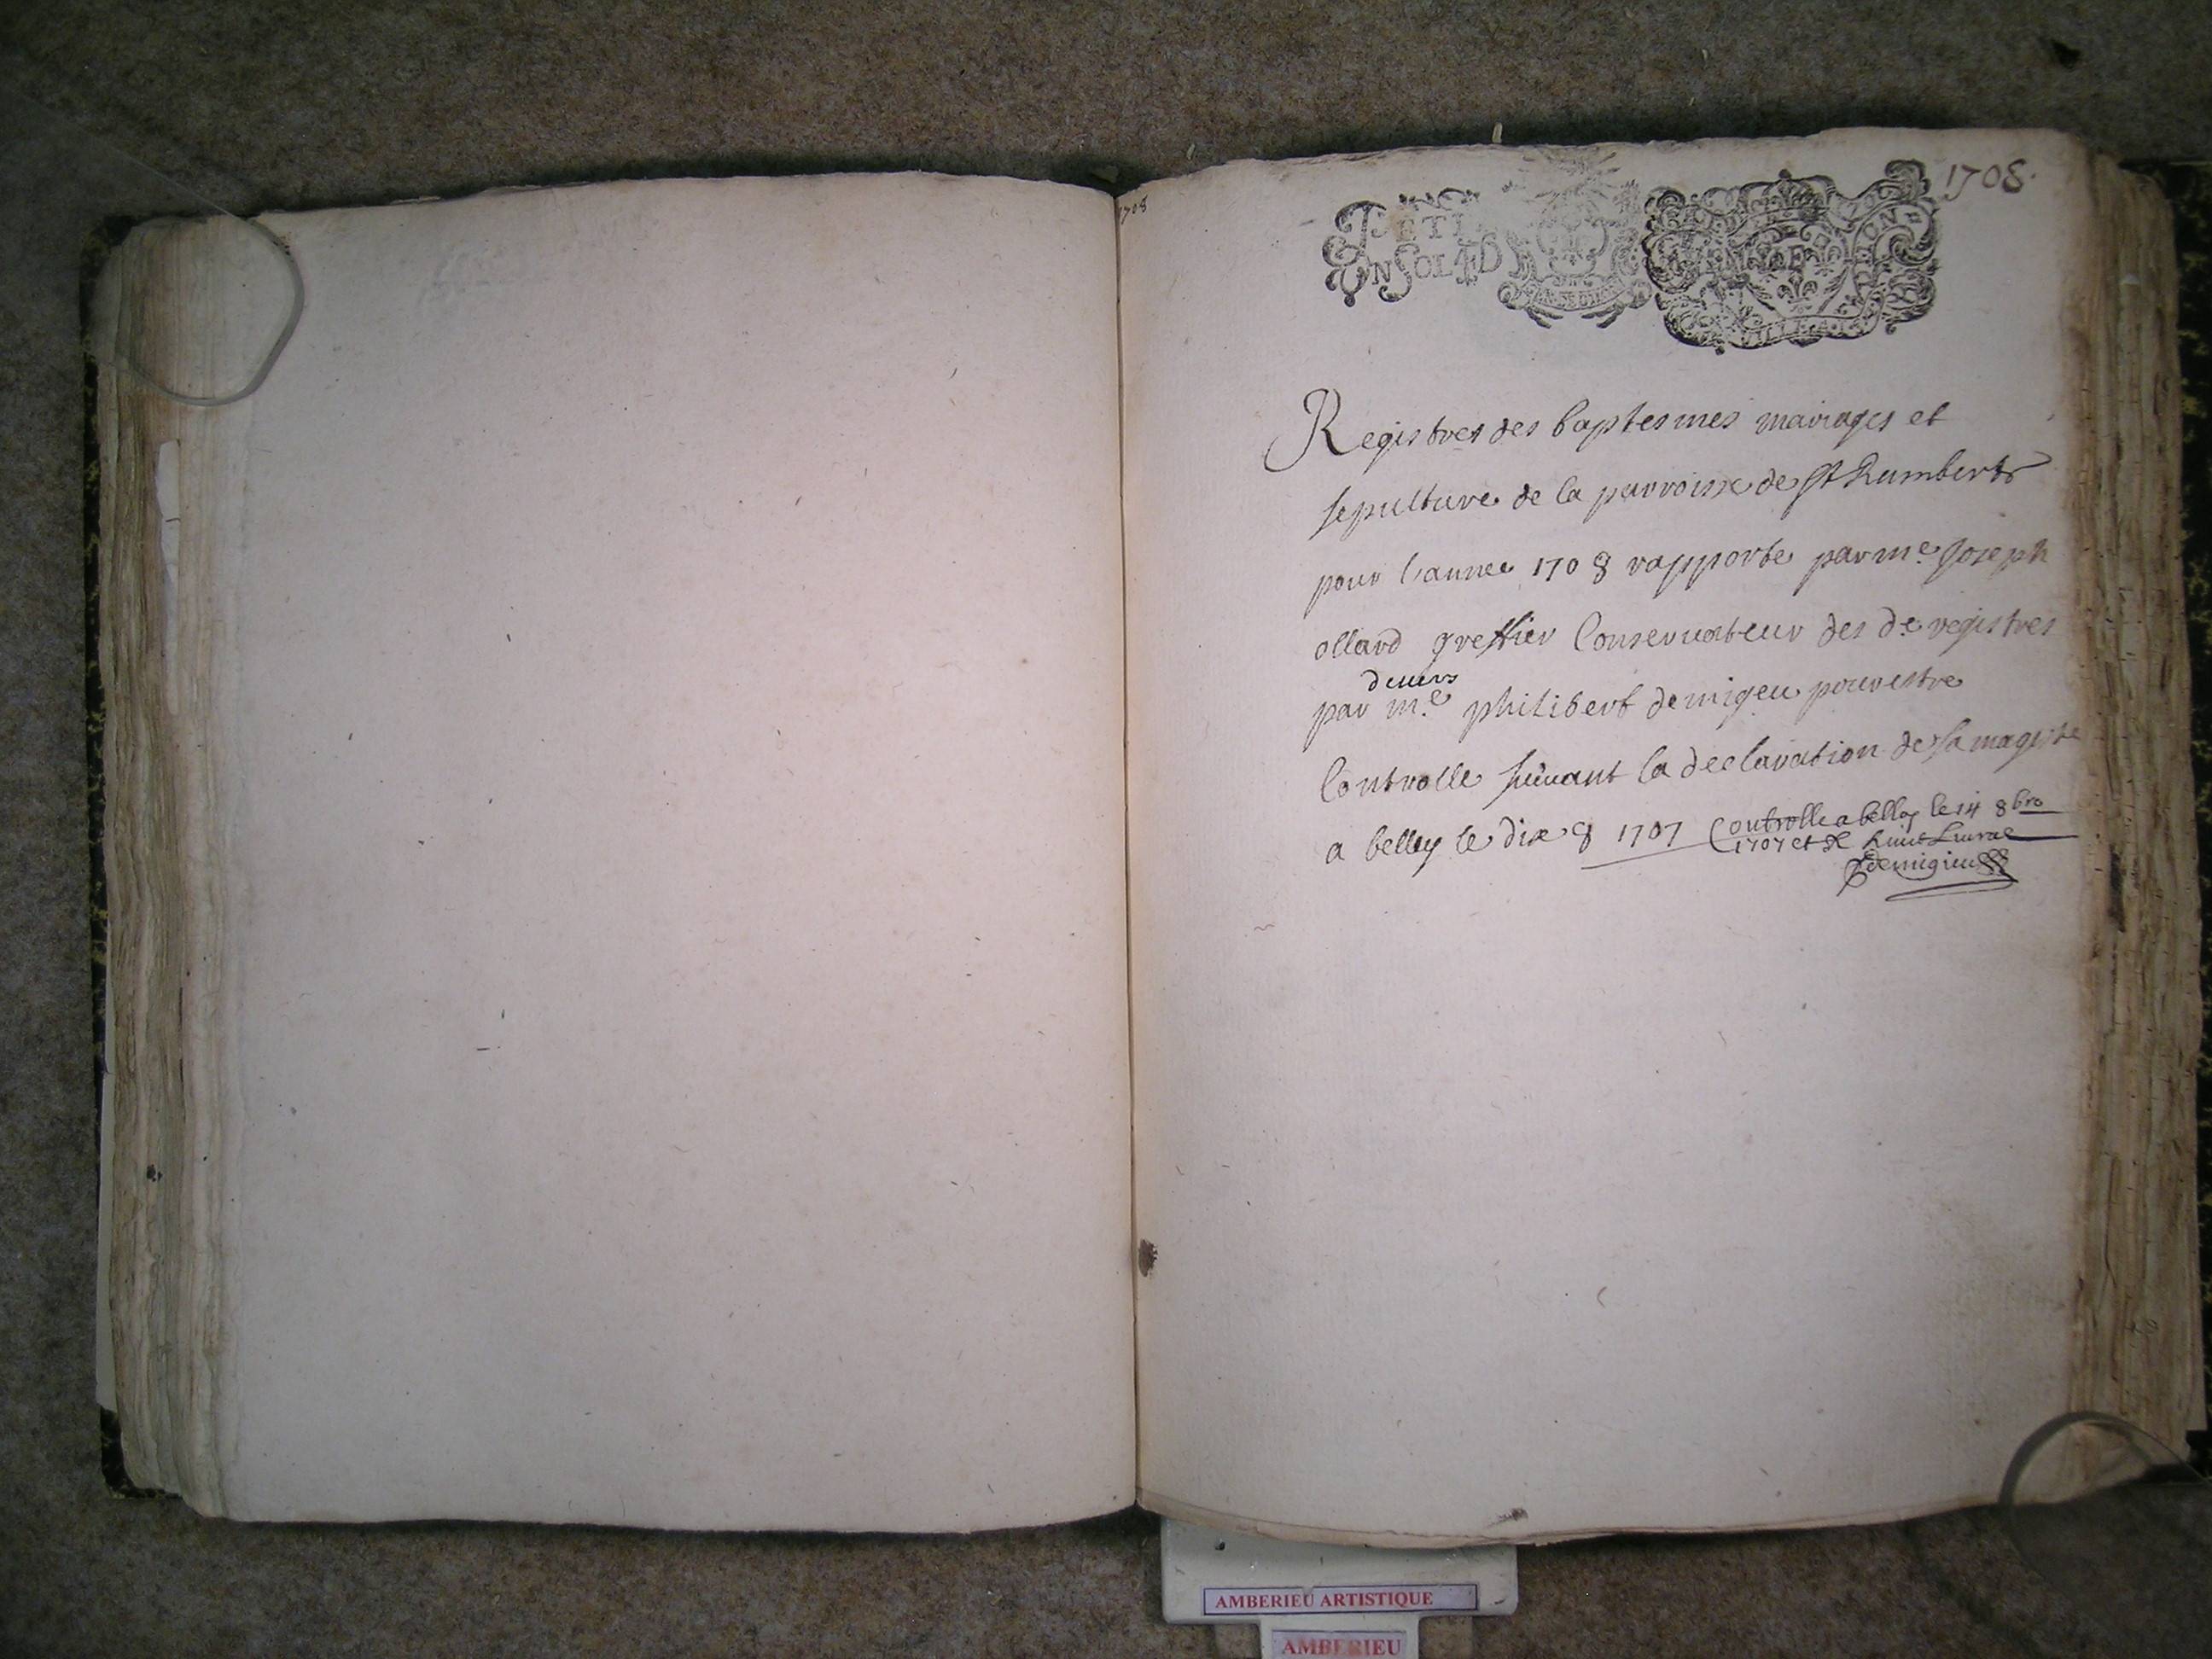 1708
1708.
Registres des baptesmes mariages et
sepulture de la parroisse de St Rambert
pour l'annee 1708 rapporte par me Joseph
ollard greffier Conservateur des de registres
devers
par me philibert demigeu pour estre
Controlle suivant la declaration de sa mageste
a belley le dix 8 1707
Controlle a belley le 14 8bre
1707 et
demigieu
AMBERIEU ARTISTIQUE
AMBERIEU